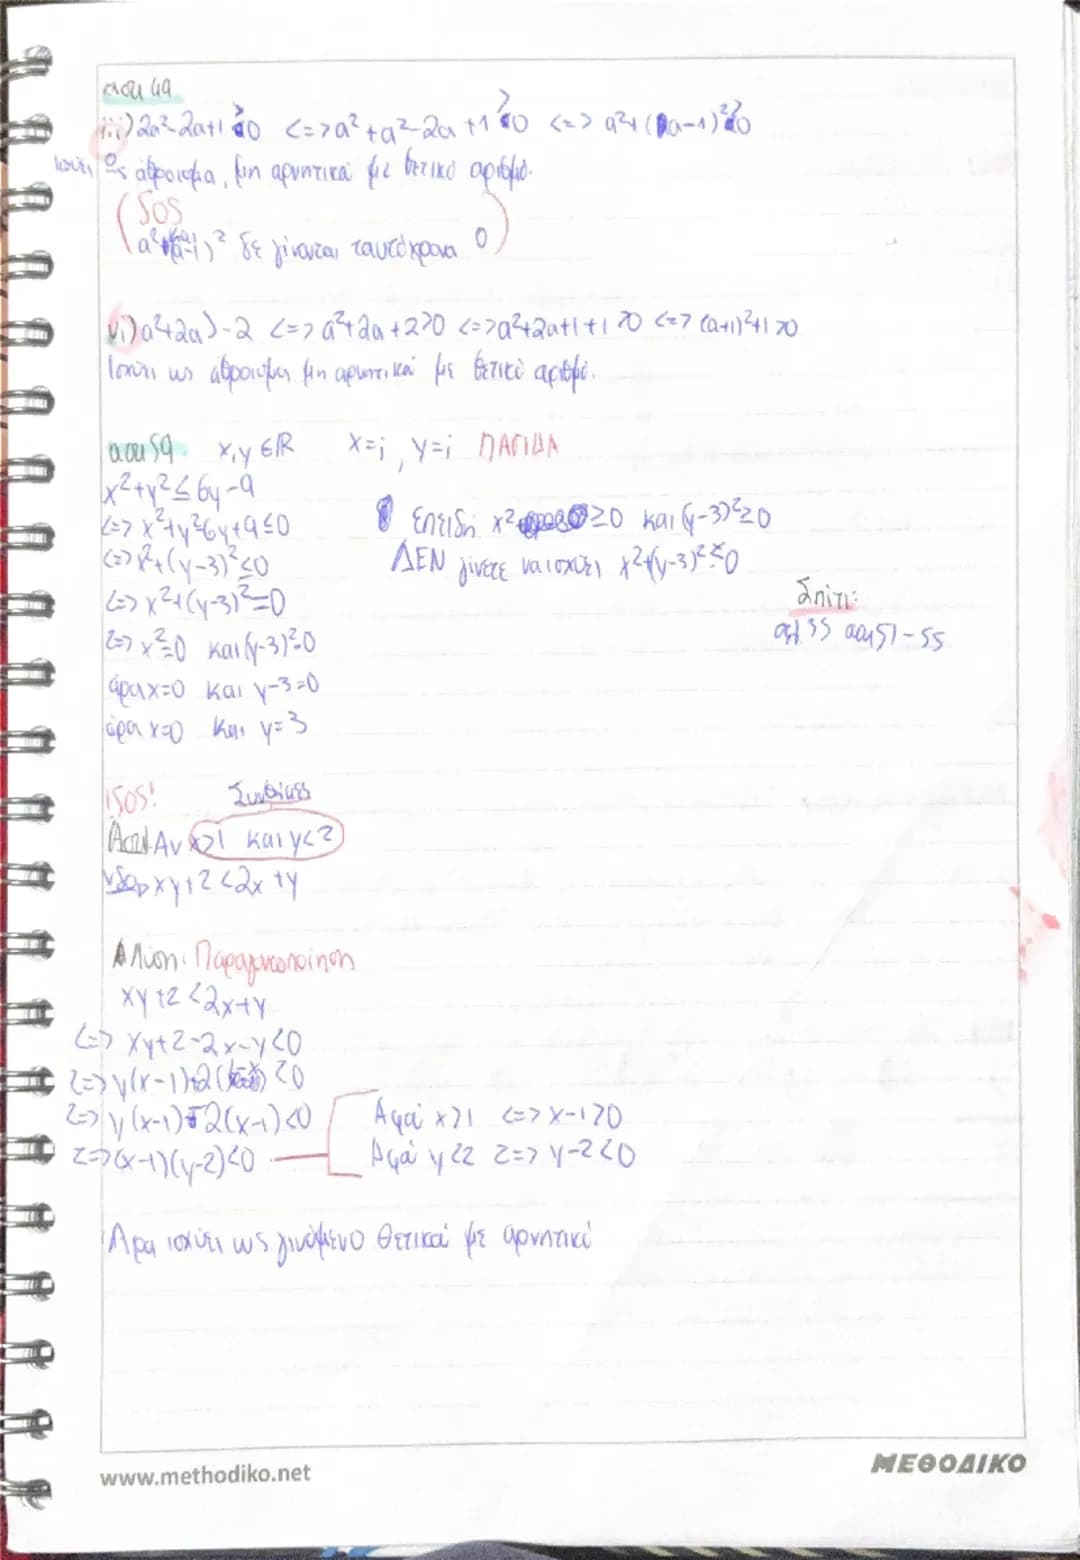 ασκ 49
iii) 2α²-2α+1>0 <=> α²+α²-2α+1>0 <=> α²+(α-1)²>0
Ισχύει ως άθροισμα, μη αρνητικά με θετικό αριθμό.
(SOS
α² και (α-1)² δε γίνονται ταυτόχρονα 0)
vi) α²+2α>-2 <=> α²+2α+2>0 <=> α²+2α+1+1>0 <=> (α+1)²+1>0
Ισχύει ως άθροισμα μη αρνητικά με θετικό αριθμό.
ασκ 59 x,y ∈ℝ x=; , y=; ΠΑΓΙΔΑ
x²+y²≤6y-9
<=> x²+y²6y+9≤0
<=> x²+(y-3)²≤0
Επειδή x² ≥0 και (y-3)²≥0
ΔΕΝ γίνετε να ισχύει x²+(y-3)²<0
<=> x²+(y-3)²=0
<=> x²=0 και (y-3)²=0
άρα x=0 και y-3=0
άρα x=0 και y=3
Σπίτι:
σελ 35 ασκ 51-55
!SOS! Συνθήκες
Αν x>1 και y<2
νδο xy+2<2x+y
Λύση: Παραγοντοποίηση
xy+2<2x+y
<=> xy+2-2x-y<0
<=> y(x-1)+2( ) <0
<=> y(x-1)-2(x-1)<0
<=> (x-1)(y-2)<0
Αφού x>1 <=> x-1>0
Αφού y<2 <=> y-2<0
Άρα ισχύει ως γινόμενο θετικού με αρνητικό
www.methodiko.net
ΜΕΘΟΔΙΚΟ